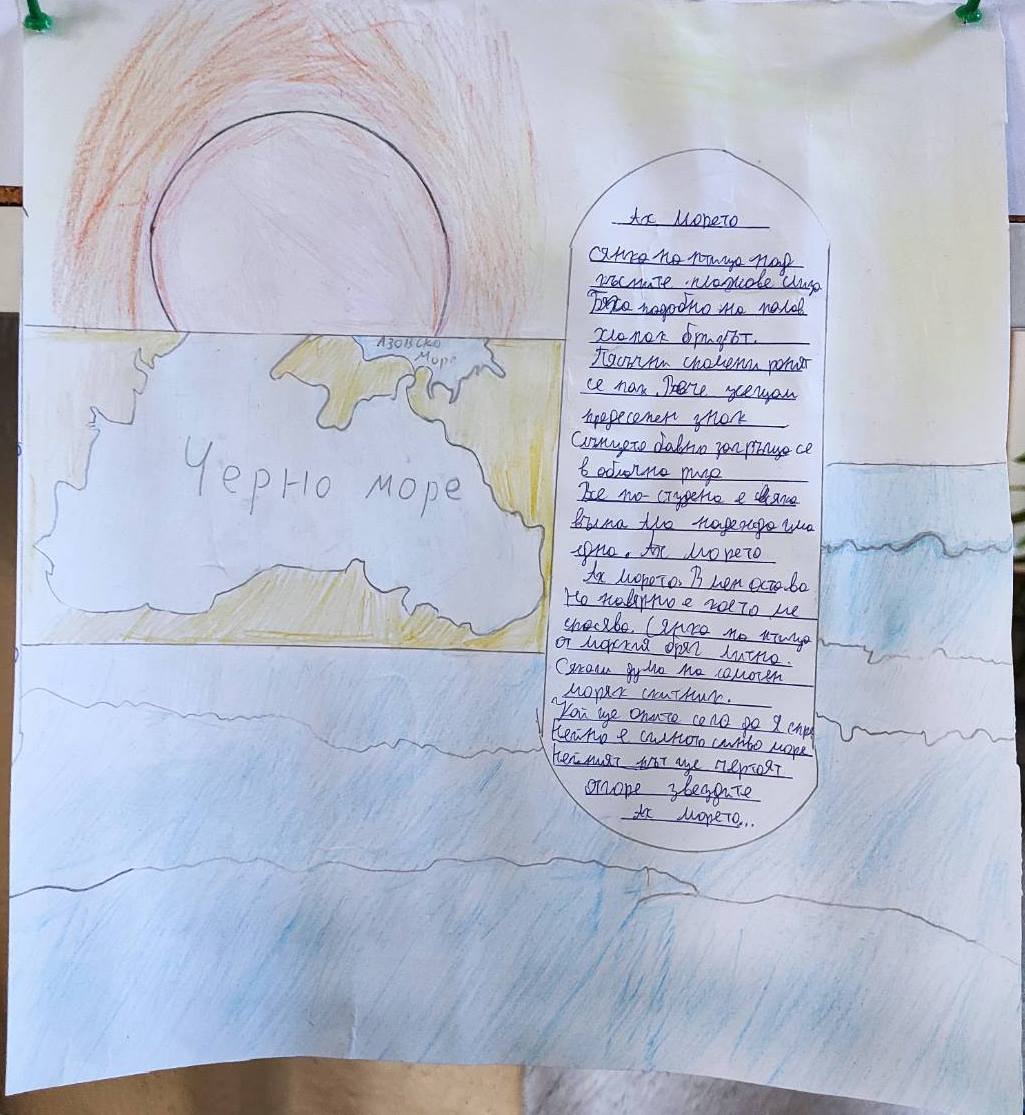 Азовско
Море
Черно море
Ах Морето
Сянка на птица над
късните плажове слиза
Бяга подобно на палав
хлапак бризът.
Пясъчни спомени ронят
се пак. Вече усещам
предесенен знак
Слънцето бавно загръща се
в облачна риза
Все по-студена е всяка
вълна Ала надежда има
една. Ах морето
Ах морето. В мен остава
На навярно е което ме
спасява. Сянка на птица
от морския бряг лична.
Сякаш дума на самотен
моряк скитник.
Кой ще опита сега да я спре
Нейно е силното синьо море
Нейният път ще чертаят
отгоре звездите
Ах морето...